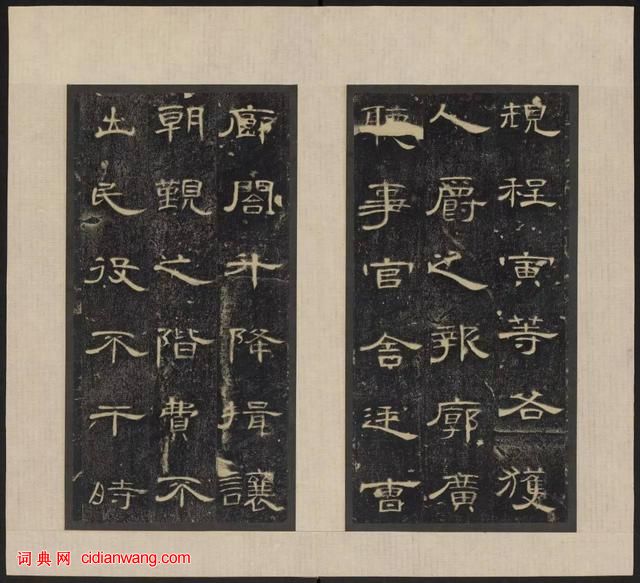 規程寅等各獲
人爵之報廓廣
聽事官舍廷曹
廊閣升降揖讓
朝覲之階費不
出民役不干時
词典网 cidianwang.com